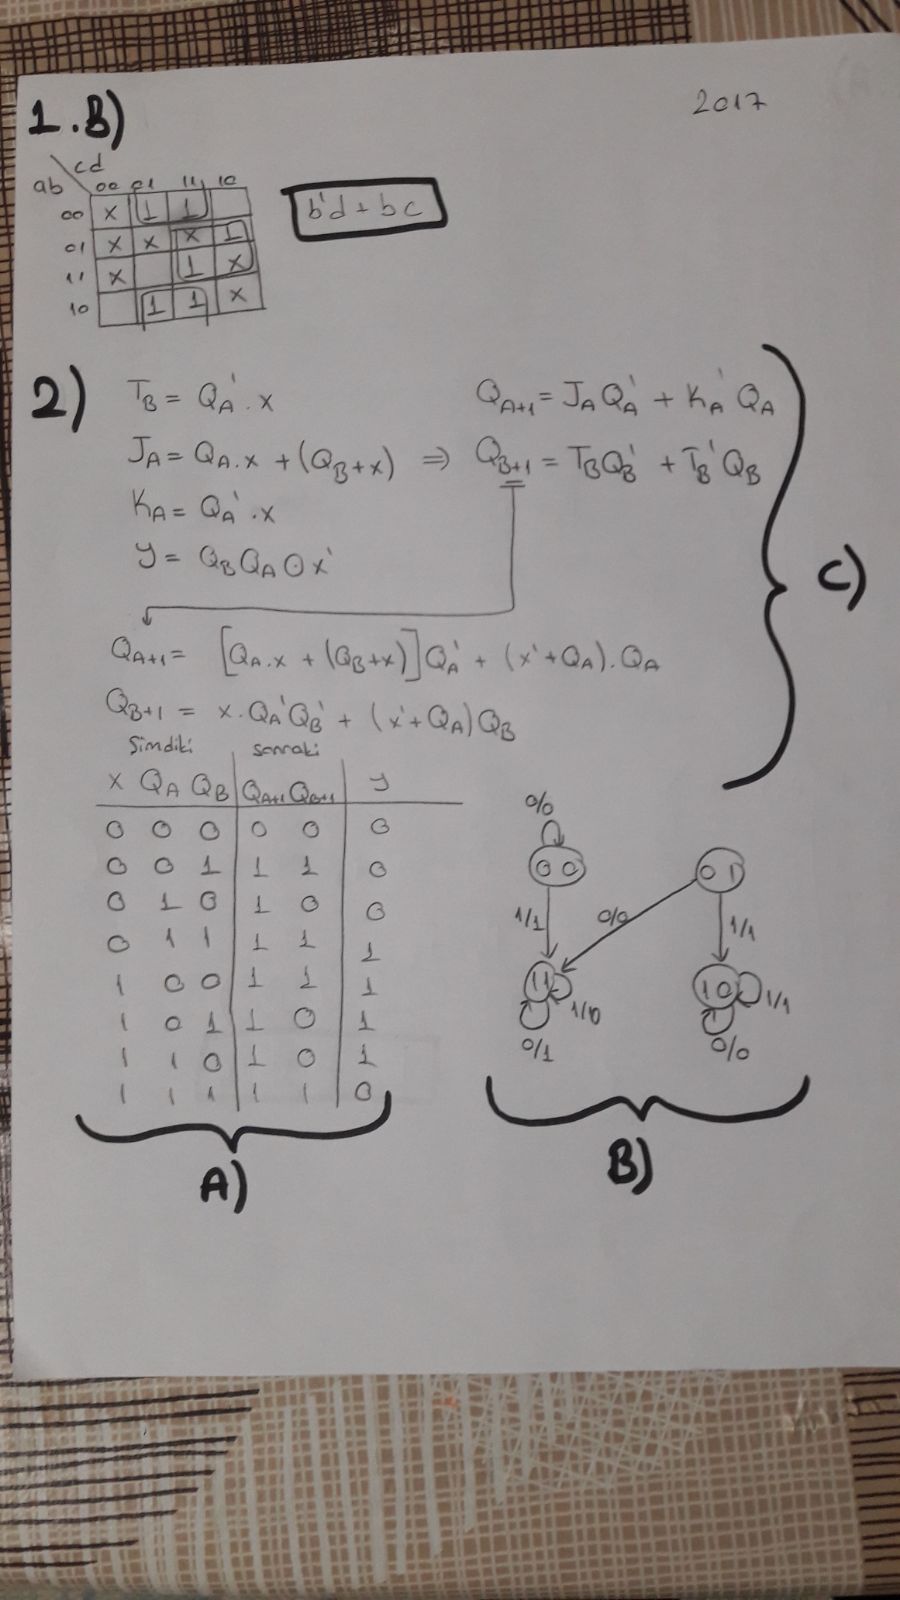 2017
1.B)
cd
ab 00 01 11 10
00 X 1 1
01 X X X 1
11 X 1 X
10 1 1 X
b'd + bc
2)
T_B = Q_A' . x
Q_A+1 = J_A Q_A' + K_A' Q_A
J_A = Q_A . x + (Q_B + x) ⇒ Q_B+1 = T_B Q_B' + T_B' Q_B
K_A = Q_A' . x
y = Q_B Q_A ⊙ x'
C)
Q_A+1 = [Q_A . x + (Q_B + x)] Q_A' + (x' + Q_A) . Q_A
Q_B+1 = x . Q_A' Q_B' + (x' + Q_A) Q_B
Şimdiki sonraki
X Q_A Q_B Q_A+1 Q_B+1 y
0 0 0 0 0 0
0 0 1 1 1 0
0 1 0 1 0 0
0 1 1 1 1 1
1 0 0 1 1 1
1 0 1 1 0 1
1 1 0 1 0 1
1 1 1 1 1 0
A)
0/0
00
01
1/1
0/0
1/1
11
10
1/0
1/1
0/1
0/0
B)